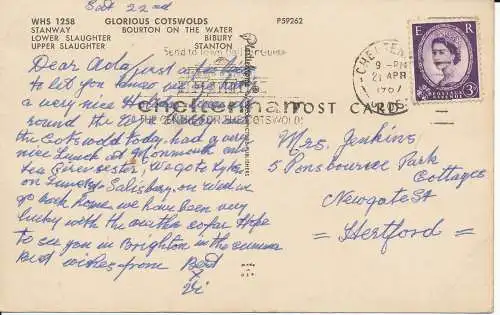 Sat 22nd
WHS 1258 GLORIOUS COTSWOLDS P59262
STANWAY BOURTON ON THE WATER
LOWER SLAUGHTER BIBURY
UPPER SLAUGHTER STANTON
Dear Ada, Just a few lines
to let you know we are having
a very nice
round the
the Cotswold today. had a very
nice lunch at Monmouth and
tea Cirencester, We go to
on Tuesday. Salisbury, on Wed, we
go back home we have been very
lucky with the weather so far. Hope
to see you in Brighton in the summer
Best wishes from Bert
X
Vi
Cheltenham
THE CENTRE FOR THE COTSWOLDS
POST CARD
CHELTENHAM
9 - PM
21 APR
E R
POSTAGE
REVENUE
3D
Mrs. Jenkins,
5 Ponsbourne Park
Cottages
Newgate St
= Hertford =